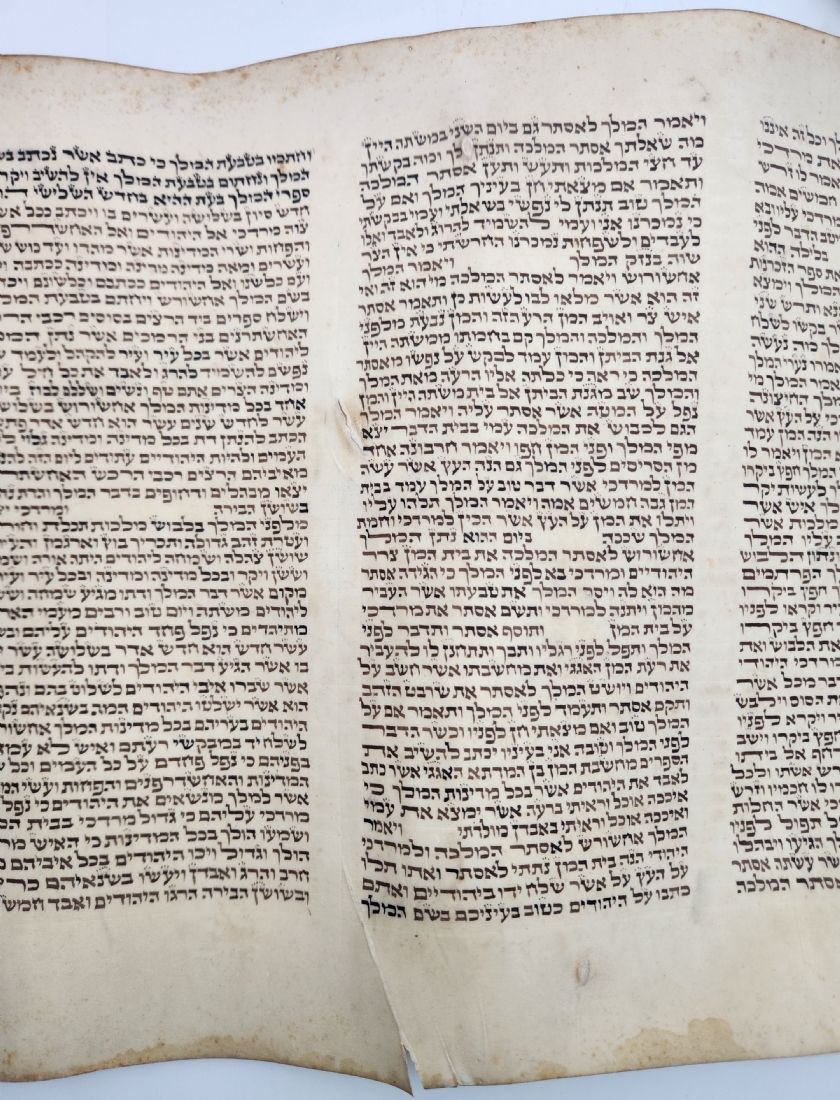 ך וכל זה איננו
את מרדכי
אמר לו זרש
חמשים אמה
מרדכי עליו ובא
טב הדבר לפני
בלילה ההוא
את ספר הזכרנות
המלך וימצא
נא ותרש שני
בקשו לשלח
לך מה נעשה
אמרו נערי המלך
המלך מי
מלך החיצונה
כי על העץ אשר
הנה המן עמד
המן ויאמר לו
מלך חפץ ביקרו
לעשות יקר
מלכות אשר
עליו המלך
נתון הלבוש
ך הפרתמים
חפץ ביקרו
וקראו לפניו
חפץ ביקרו
את הלבוש ואת
מרדכי היהודי
דבר מכל אשר
את הסוס וילבש
ויקרא לפניו
חפץ ביקרו וישב
דחף אל ביתו
רש אשתו ולכל
לו חכמיו וזרש
כי אשר החלות
תפול לפניו
ך הגיעו ויבהלו
שר עשתה אסתר
סתר המלכה
ויאמר המלך לאסתר גם ביום השני במשתה היין
מה שאלתך אסתר המלכה ותנתן לך ומה בקשתך
עד חצי המלכות ותעש ותען אסתר המלכה
ותאמר אם מצאתי חן בעיניך המלך ואם על
המלך טוב תנתן לי נפשי בשאלתי ועמי בבקשתי
כי נמכרנו אני ועמי להשמיד להרוג ולאבד ואלו
לעבדים ולשפחות נמכרנו החרשתי כי אין הצר
שוה בנזק המלך ויאמר המלך
אחשורוש ויאמר לאסתר המלכה מי הוא זה ואי
זה הוא אשר מלאו לבו לעשות כן ותאמר אסתר
איש צר ואויב המן הרע הזה והמן נבעת מלפני
המלך והמלכה והמלך קם בחמתו ממשתה היין
אל גנת הביתן והמן עמד לבקש על נפשו מאסתר
המלכה כי ראה כי כלתה אליו הרעה מאת המלך
והמלך שב מגנת הביתן אל בית משתה היין והמן
נפל על המטה אשר אסתר עליה ויאמר המלך
הגם לכבוש את המלכה עמי בבית הדבר יצא
מפי המלך ופני המן חפו ויאמר חרבונה אחד
מן הסריסים לפני המלך גם הנה העץ אשר עשה
המן למרדכי אשר דבר טוב על המלך עמד בבית
המן גבה חמשים אמה ויאמר המלך תלהו עליו
ויתלו את המן על העץ אשר הכין למרדכי וחמת
המלך שככה ביום ההוא נתן המלך
אחשורוש לאסתר המלכה את בית המן צרר
היהודיים ומרדכי בא לפני המלך כי הגידה אסתר
מה הוא לה ויסר המלך את טבעתו אשר העביר
מהמן ויתנה למרדכי ותשם אסתר את מרדכי
על בית המן ותוסף אסתר ותדבר לפני
המלך ותפל לפני רגליו ותבך ותתחנן לו להעביר
את רעת המן האגגי ואת מחשבתו אשר חשב על
היהודים ויושט המלך לאסתר את שרבט הזהב
ותקם אסתר ותעמד לפני המלך ותאמר אם על
המלך טוב ואם מצאתי חן לפניו וכשר הדבר
לפני המלך וטובה אני בעיניו יכתב להשיב את
הספרים מחשבת המן בן המדתא האגגי אשר כתב
לאבד את היהודים אשר בכל מדינות המלך כי
איככה אוכל וראיתי ברעה אשר ימצא את עמי
ואיככה אוכל וראיתי באבדן מולדתי ויאמר
המלך אחשורש לאסתר המלכה ולמרדכי
היהודי הנה בית המן נתתי לאסתר ואתו תלו
על העץ על אשר שלח ידו ביהודיים ואתם
כתבו על היהודים כטוב בעיניכם בשם המלך
וחתמו בטבעת המלך כי כתב אשר נכתב בש
המלך ונחתום בטבעת המלך אין להשיב ויקר
ספרי המלך בעת ההיא בחדש השלישי ה
חדש סיון בשלושה ועשרים בו ויכתב ככל אש
צוה מרדכי אל היהודים ואל האחשדרפ
והפחות ושרי המדינות אשר מהדו ועד כוש ש
ועשרים ומאה מדינה מדינה ומדינה ככתבה ו
ועם כלשנו ואל היהודים ככתבם וכלשונם ויכת
בשם המלך אחשורש ויחתם בטבעת המל
וישלח ספרים ביד הרצים בסוסים רכבי הר
האחשתרנים בני הרמכים אשר נתן המל
ליהודים אשר בכל עיר ועיר להקהל ולעמד ע
נפשם להשמיד להרג ולאבד את כל חיל ע
ומדינה הצרים אתם טף ונשים ושללם לבוז בי
אחד בכל מדינות המלך אחשורוש בשלוש
עשר לחדש שנים עשר הוא חדש אדר פת
הכתב להנתן דת בכל מדינה ומדינה גלוי ל
העמים ולהיות היהודיים עתידים ליום הזה להנ
מאיביהם הרצים רכבי הרכש האחשתר
יצאו מבהלים ודחופים בדבר המלך והדת נת
בשושן הבירה ומרדכי י
מלפני המלך בלבוש מלכות תכלת וחור
ועטרת זהב גדולה ותכריך בוץ וארגמן והעי
שושן צהלה ושמחה ליהודים היתה אורה ושמ
וששן ויקר ובכל מדינה ומדינה ובכל עיר ועי
מקום אשר דבר המלך ודתו מגיע שמחה וש
ליהודים משתה ויום טוב ורבים מעמי האר
מתיהדים כי נפל פחד היהודים עליהם ובש
עשר חדש הוא חדש אדר בשלושה עשר י
בו אשר הגיע דבר המלך ודתו להעשות ב
אשר שברו איבי היהודים לשלוט בהם ונהפ
הוא אשר ישלטו היהודים המה בשנאיהם נק
היהודים בעריהם בכל מדינות המלך אחשור
לשלח יד במבקשי רעתם ואיש לא עמד
בפניהם כי נפל פחדם על כל העמים וכל ש
המדינות והאחשדרפנים והפחות ועשי המ
אשר למלך מנשאים את היהודים כי נפל
מרדכי עליהם כי גדול מרדכי בבית המ
ושמעו הולך בכל המדינות כי האיש מר
הולך וגדול ויכו היהודים בכל איביהם מ
חרב והרג ואבדן ויעשו בשנאיהם כר
ובשושן הבירה הרגו היהודים ואבד חמש